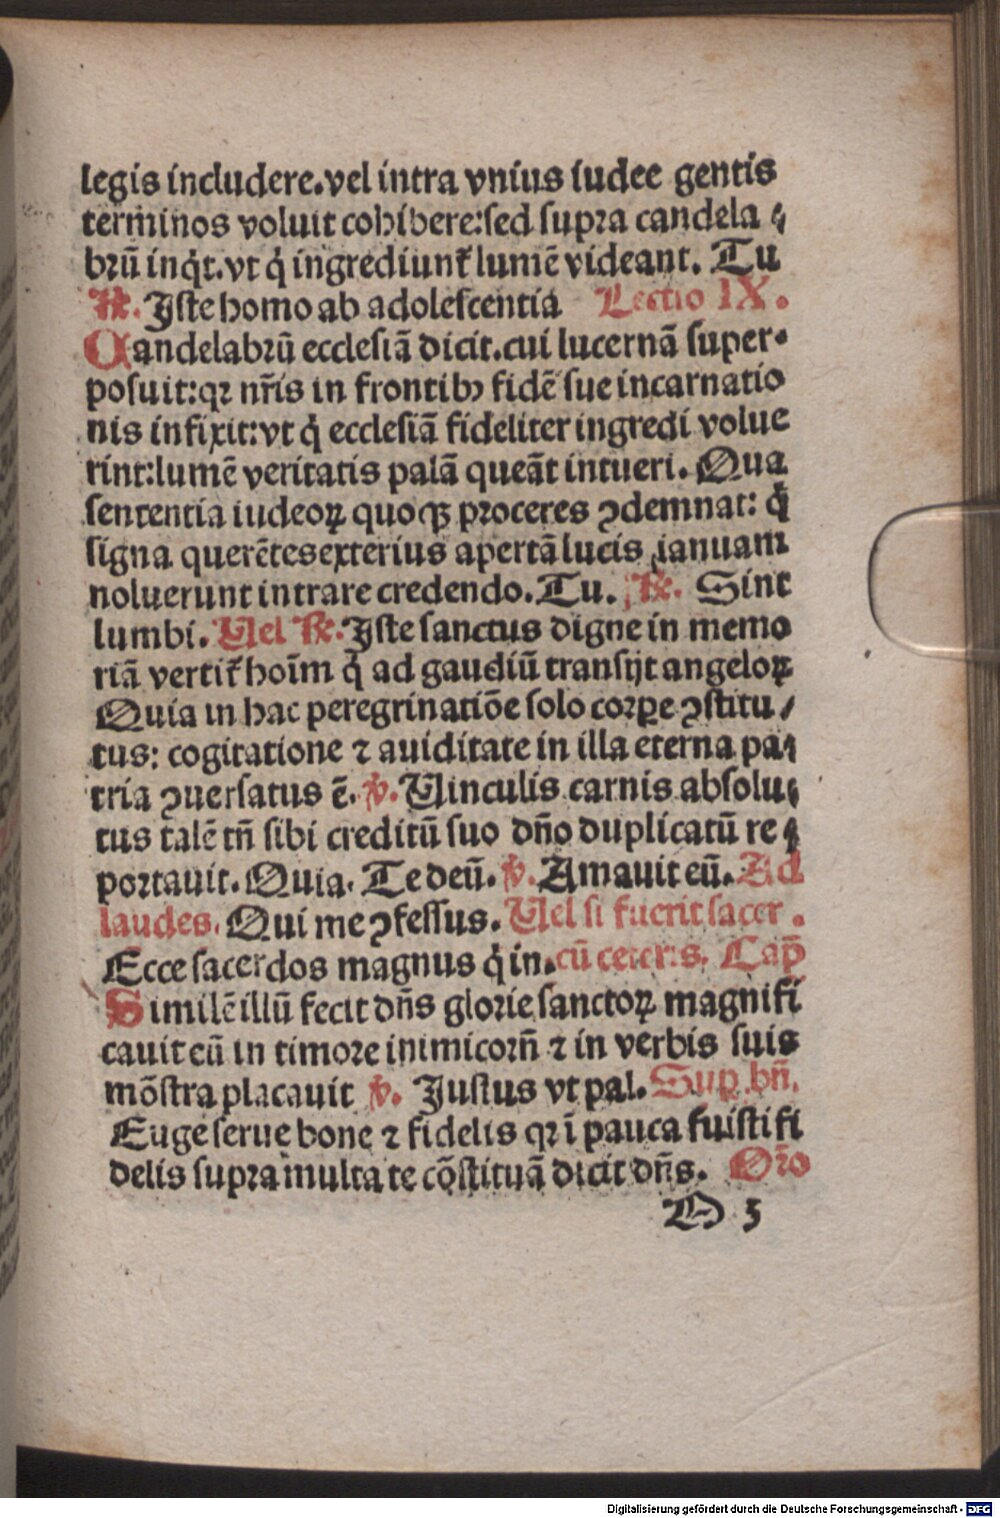 legis includere.vel intra vnius iudee gentis
terminos voluit cohibere:sed supra candela
brū inq̇t.vt q̇ ingrediunt̃ lumē videant. Tu
℞. Iste homo ab adolescentia Lectio IX.
Candelabrū ecclesiā dicit.cui lucernā super-
posuit:qꝛ nr̃is in frontibꝰ fidē sue incarnatio
nis infixit:vt q̇ ecclesiā fideliter ingredi volue
rint:lumē veritatis palā queāt intueri. Qua
sententia iudeoꝝ quoqꝫ proceres ꝯdemnat: q̇
signa querētes exterius apertā lucis ianuam
noluerunt intrare credendo. Tu. ℞. Sint
lumbi. Vel ℞. Iste sanctus digne in memo
riā vertit̃ hoīm q̇ ad gaudiū transijt angeloꝝ
Quia in hac peregrinatiōe solo corꝑe ꝯstitu/
tus: cogitatione ⁊ auiditate in illa eterna pa
tria ꝯuersatus ē. ℣. Vinculis carnis absolu
tus talē tñ sibi creditū suo dño duplicatū re
portauit. Quia. Te deū. ℣. Amauit eū. Ad
laudes. Qui me ꝯfessus. Vel si fuerit sacer.
Ecce sacerdos magnus q̇ in. cū ceteris. Cap̄
Similē illū fecit dñs glorie sanctoꝝ magnifi
cauit eū in timore inimicorū ⁊ in verbis suis
mōstra placauit ℣. Iustus vt pal. Sup bñ.
Euge serue bone ⁊ fidelis qꝛ ī pauca fuisti fi
delis supra multa te cōstituā dicit dñs. Or̄o
O 5
Digitalisierung gefördert durch die Deutsche Forschungsgemeinschaft - DFG